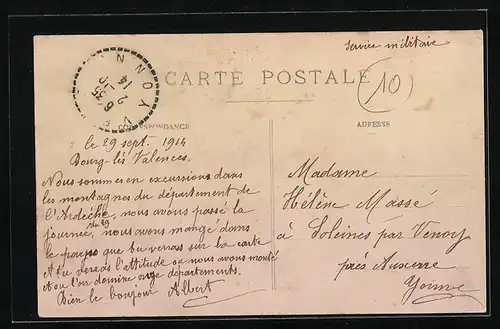 Service militaire
CARTE POSTALE
10
CORRESPONDANCE
ADRESSE
le 29 sept. 1914
Bourg-lès Valences.
Nous sommes en excursions dans
les montagnes du département de
l'Ardèche, nous avons passé la
journée, du 29 nous avons mangé dans
le que tu verras sur la carte
et tu verras l'altitude où nous avons monté
et où l'on domine onze départements.
Bien le bonjour Albert
Madame
Hélène Massé
à Soleines par Venoy
près Auxerre
Yonne